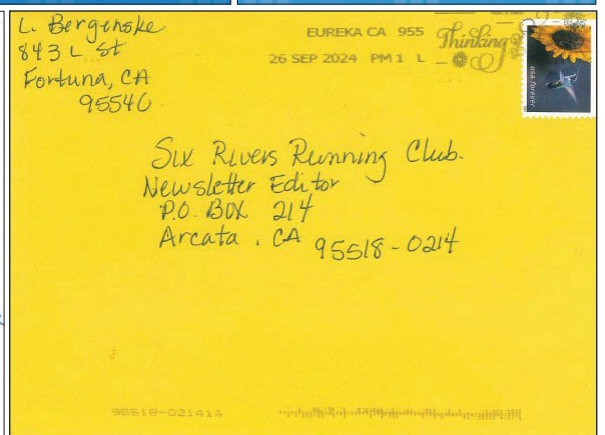 L. Bergenske
843 L St
Fortuna, CA
95540
EUREKA CA 955
26 SEP 2024 PM 1 L
Thinking
usa forever
Six Rivers Running Club.
Newsletter Editor
P.O. BOX 214
Arcata, CA 95518-0214
95518-021414